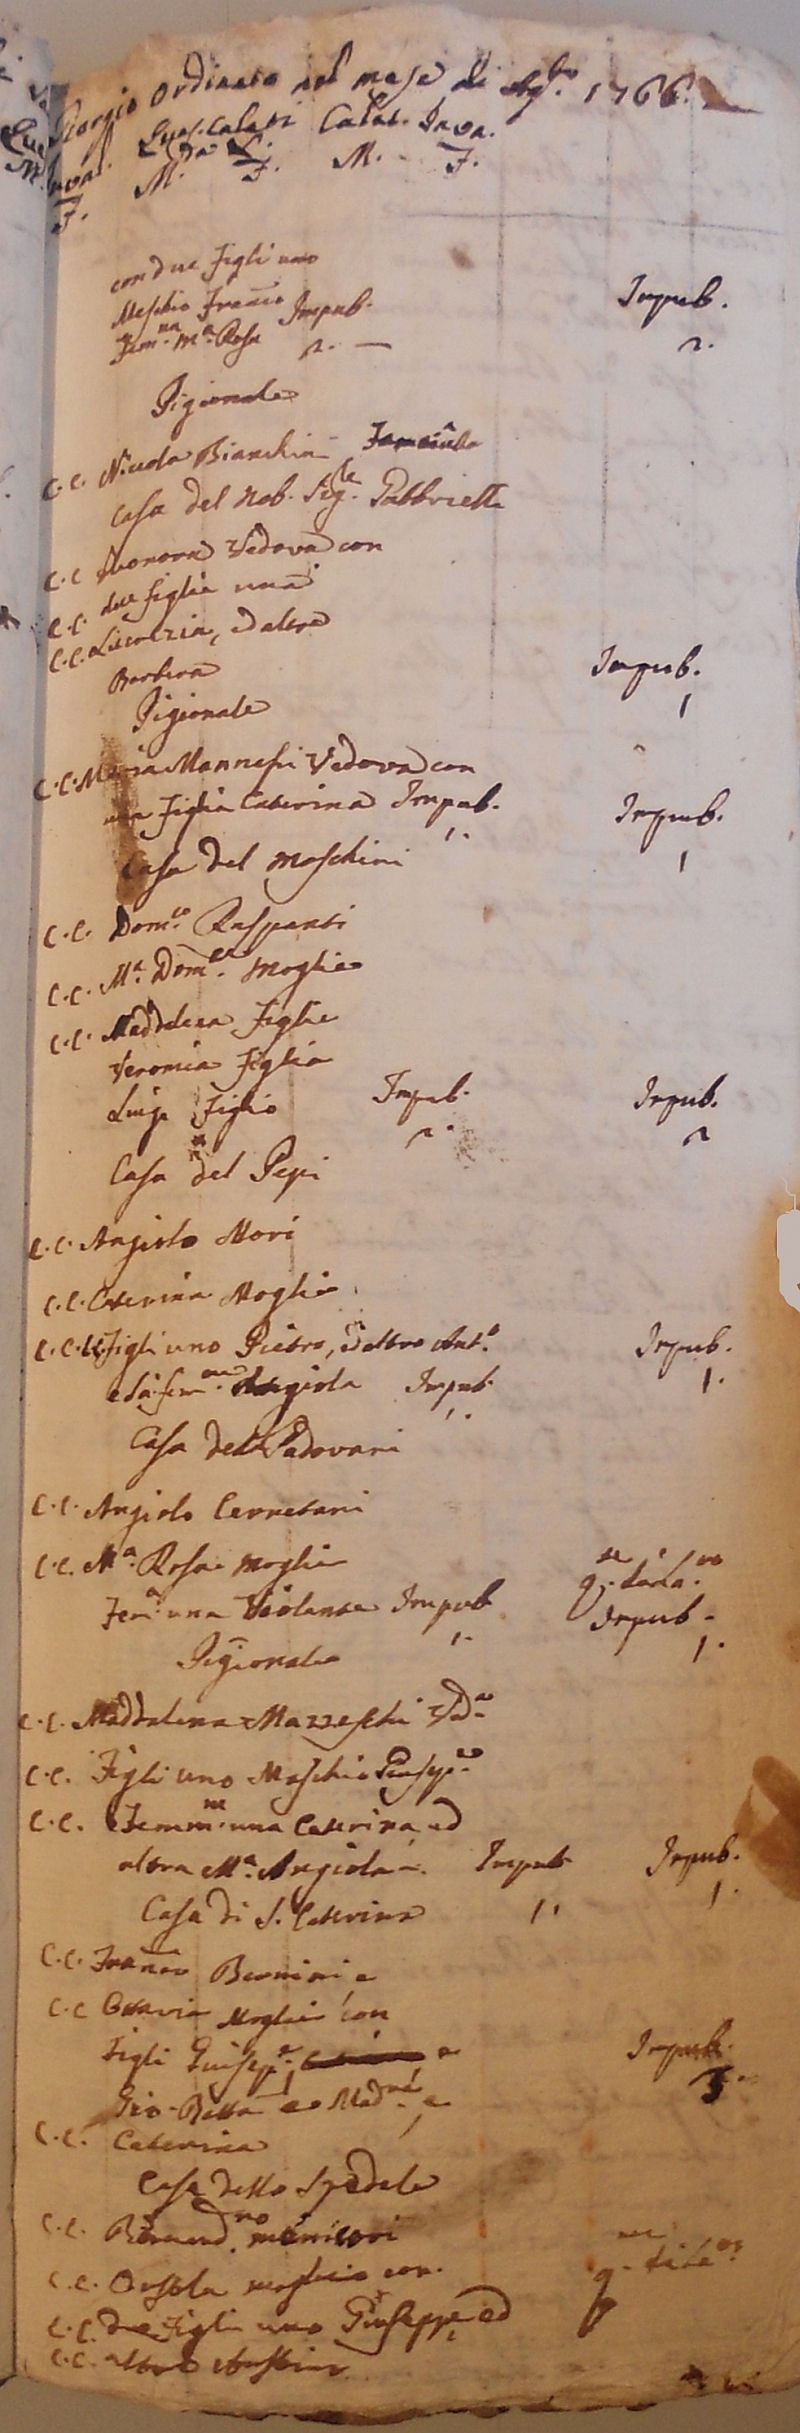 Giorgio ordinata nel mese di 1766.
Calati Calat. Inva.
Inval. M. F. M. F.
F.
con due figli uno
Maschio Franco Impub. Impub.
Fem.na M.a Rosa 2. — 2.
Pigionale
C.C. Nicola Bianchini
Casa del Nob. Sig.le Gabbrielli
C.C. Vedova con
C.C. due figlie una
C.C. Lucrezia, ed altra
Barbera Impub.
Pigionale 1
C.C. Maria Mannessi Vedova con
una figlia Caterina Impub. Impub.
Casa del Maschini 1. 1
C.C. Dom.co Raspanti
C.C. M.a Dom.ca Moglie
C.C. Maddalena Figlie
Veronica Figlia
Luigi Figlio Impub. Impub.
2. 2
Casa del Pepi
C.C. Angiolo Mori
C.C. Caterina Moglie
C.C. Figli uno Pietro, ed altro Ant.o Impub.
e la fem.na Angiola Impub. 1.
1.
Casa del Padovani
C.C. Angiolo Cerretani
C.C. M.a Rosa Moglie
Fem.a una Violante Impub. Impub.
Pigionale 1. 1.
C.C. Maddalena Mazzeschi Ved.a
C.C. Figli uno Maschio Giusep.e
C.C. Femm.ne una Caterina, ed
altra M.a Angiola Impub. Impub.
Casa di S. Caterina 1. 1.
C.C. Franco Bernini e
C.C. Ottavia Moglie con
Figli Giusep.e, e Impub.
Gio. Batta e Mad.na, e 3.
C.C. Caterina
Casa dello Spedale
C.C. Bernard.no
C.C. Orsola moglie con
C.C. due figli uno Giuseppe, ed
C.C. altro